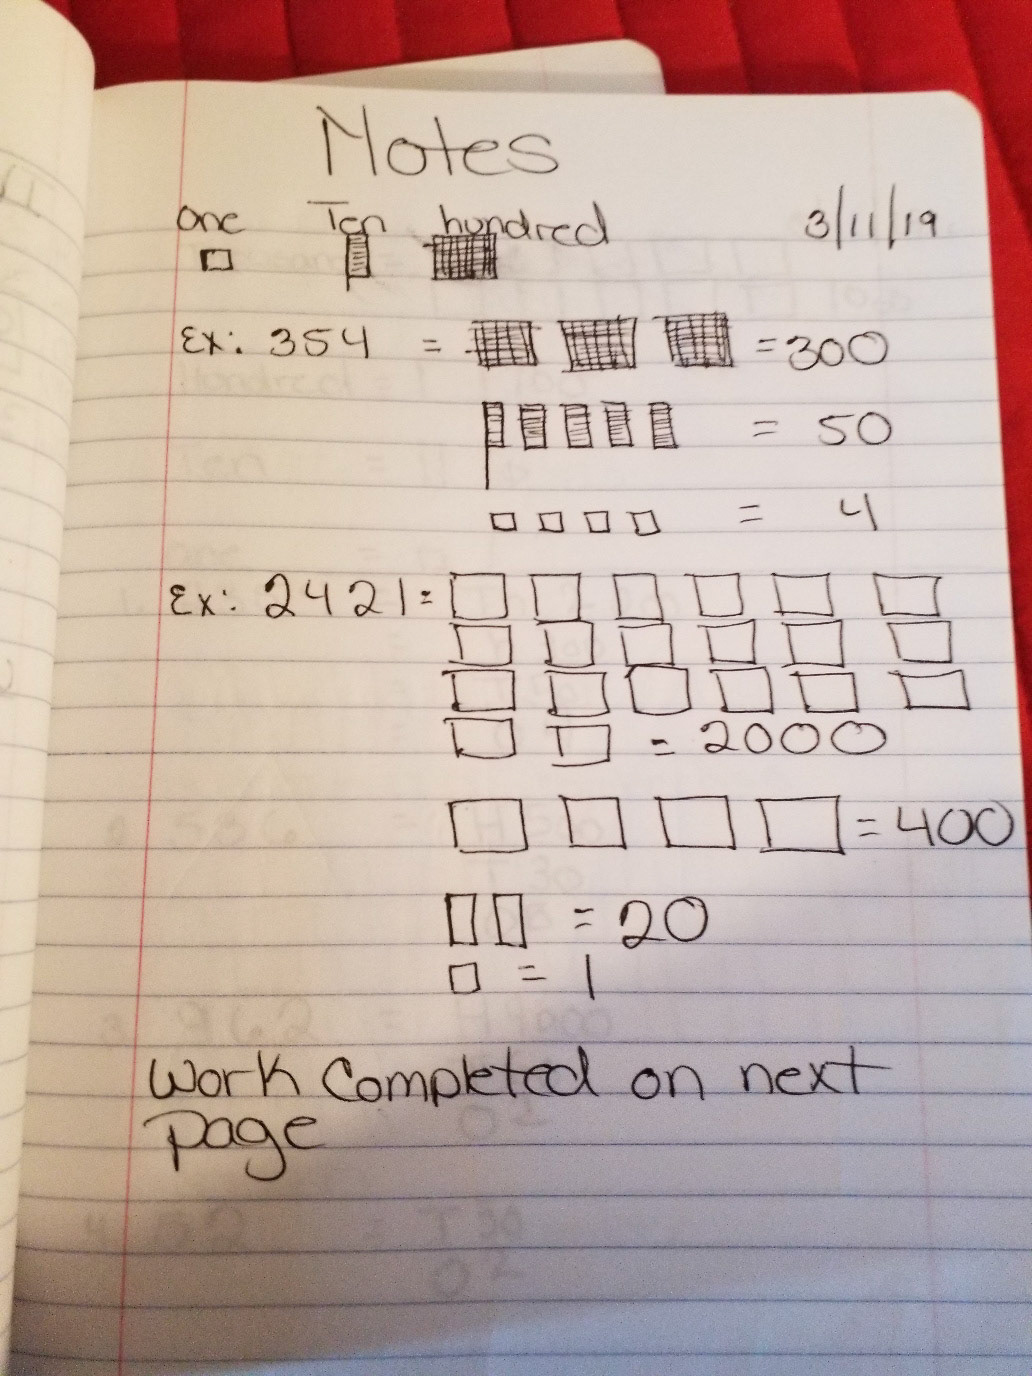 Notes
one Ten hundred 3/11/19
Ex: 354 = = 300
= 50
= 4
Ex: 2421 =
= 2000
= 400
= 20
= 1
Work Completed on next
page